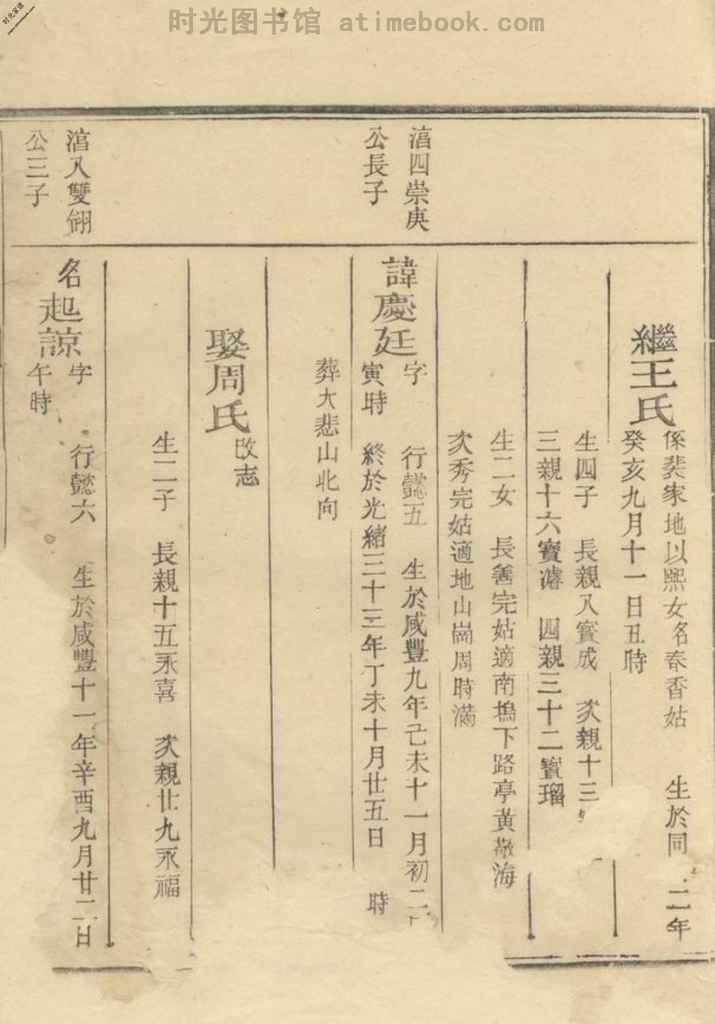 时光图书馆 atimebook.com
时光家谱
繼王氏
係裴家地以熙女名春香姑 生於同 二年
癸亥九月十一日丑時
生四子 長親八寳成 次親十三
三親十六寳濬 四親三十二寳瑠
生二女 長善完姑適南塢下路亭黃敬海
次秀完姑適地山崗周時滿
湻四崇庚
公長子
諱慶廷
字 行懿五 生於咸豐九年己未十一月初二
寅時 終於光緒三十三年丁未十月廿五日 時
葬大悲山北向
娶周氏
改志
生二子 長親十五永喜 次親廿九永福
湻八雙翎
公三子
名起諒
字 行懿六 生於咸豐十一年辛酉九月廿二日
午時